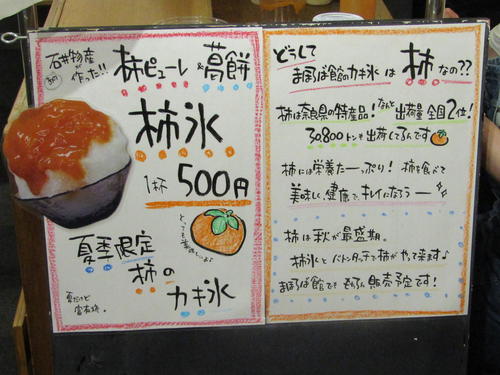 石井物産
が
作った!!
柿ピューレ&葛餅
柿氷
1杯 500円
とっても美味しいよ♪
夏季限定
柿の
カキ氷
夏だけど
富有柿。
どうして
まほろば館のカキ氷は 柿 なの??
柿は奈良県の特産品!なんと出荷量 全国2位!
30800トンも出荷してるんです
柿には栄養たーっぷり! 柿を食べて
美味しく、健康で、キレイになろうー
柿は秋が最盛期。
柿氷とバトンタッチで柿がやって来ます♪
まほろば館でも もちろん 販売予定です!